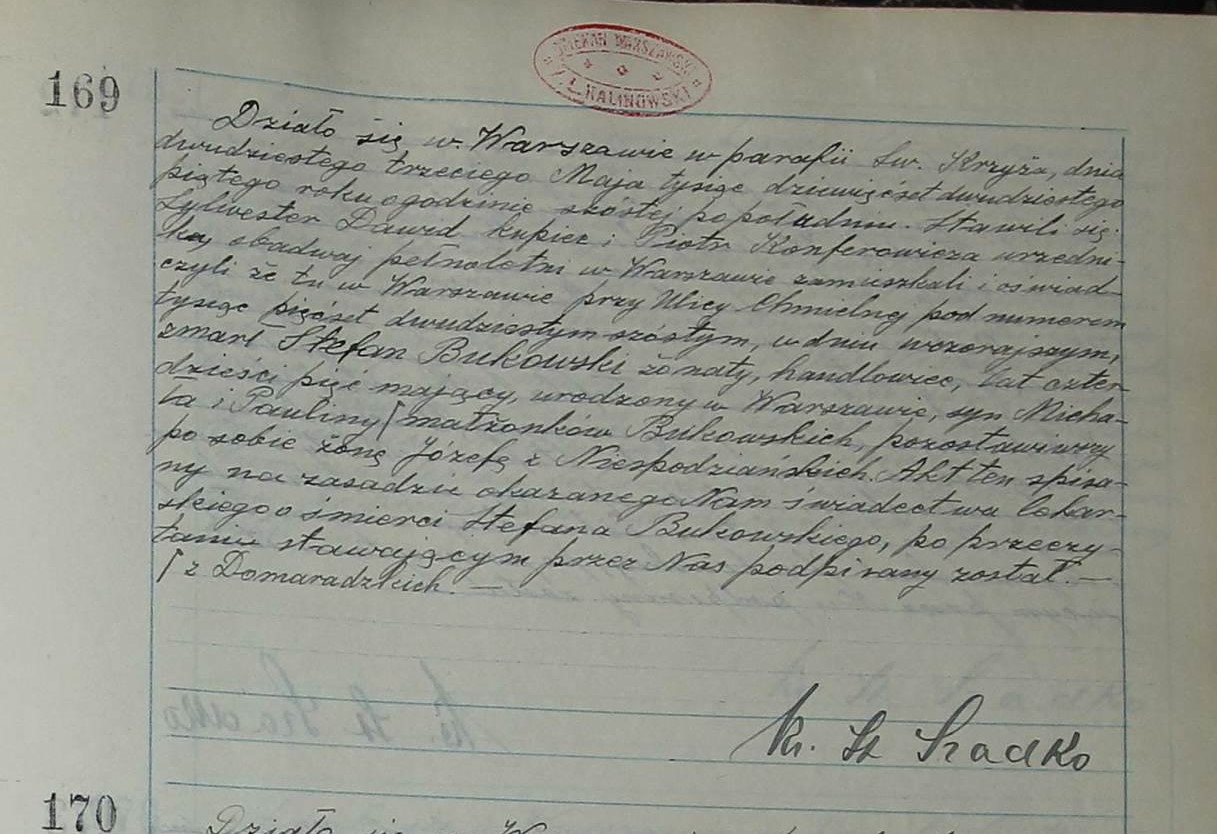 DZIEKAN WARSZAWSKI
KALINOWSKI
169
Działo się w Warszawie w parafii Św. Krzyża, dnia
dwudziestego trzeciego Maja tysiąc dziewięćset dwudziestego
piątego roku o godzinie szóstej po południu. Stawili się:
Sylwester Dawid kupiec i Piotr Konferowicza urzędni-
ka, obadwaj pełnoletni w Warszawie zamieszkali i oświad-
czyli że tu w Warszawie przy Ulicy Chmielnej pod numerem
tysiąc pięćset dwudziestym szóstym, w dniu wczorajszym,
zmarł Stefan Bukowski żonaty, handlowiec, lat czter-
dzieści pięć mający, urodzony w Warszawie, syn Micha-
ła i Pauliny ⌈ małżonków Bukowskich, pozostawiwszy
po sobie żonę Józefę z Niespodziańskich. Akt ten spisa-
ny na zasadzie okazanego Nam świadectwa lekar-
skiego o śmierci Stefana Bukowskiego, po przeczy-
taniu stawającym przez Nas podpisany został. —
⌈ z Domaradzkich. —
Ks. St Szadko
170
Działo się w